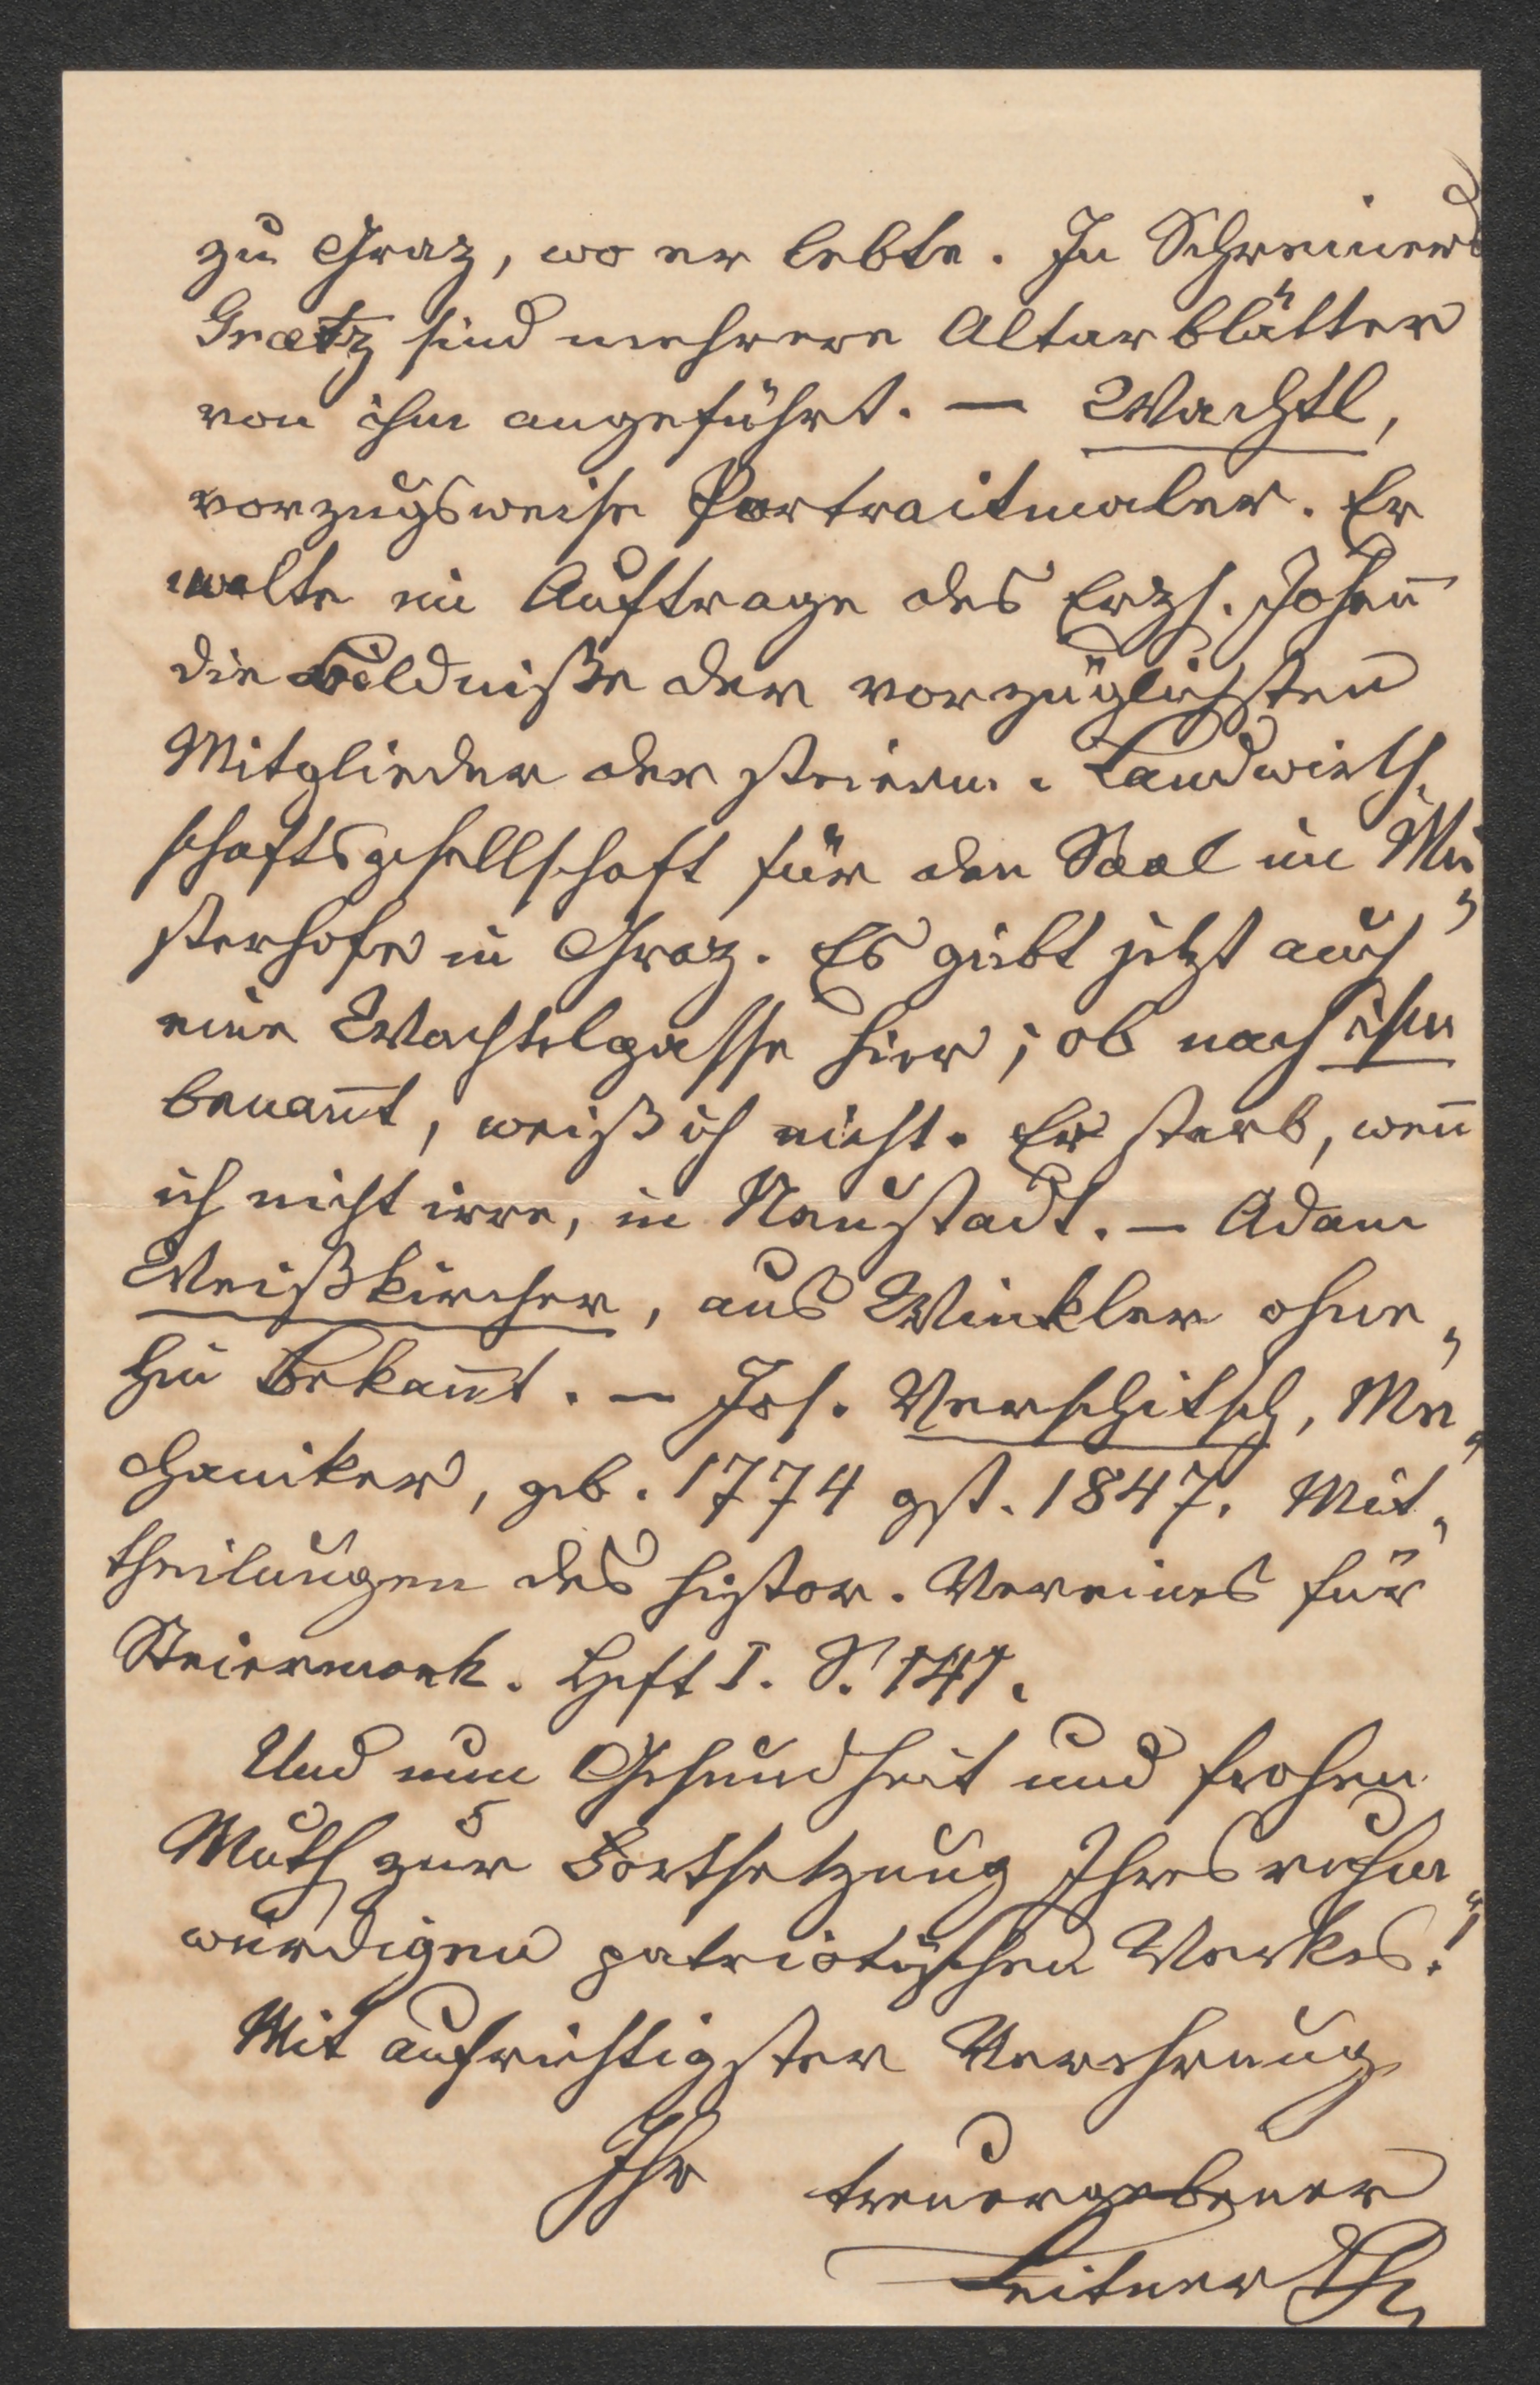 zu Graz, wo er lebte. In Schreiners
Graetz sind mehrere Altarblätter
von ihm angeführt. — Wachtl,
vorzugsweise Portraitmaler. Er
malte im Auftrage des Erzh. Johan̄
die Bildniße der vorzüglichsten
Mitglieder der steierm. Landwirth,
schaftsgesellschaft für den Saal im Mu„
sterhofe in Graz. Es gibt jetzt auch
eine Wachtelgasse hier; ob nach ihm
benan̄t, weiß ich nicht. Er starb, wen̄
ich nicht irre, in Neustadt. — Adam
Weißkircher, aus Winkler ohne„
hin bekan̄t. — Jos. Verschitsch, Me„
chaniker, geb. 1774 gst. 1847. Mit„
theilungen des histor. Vereines für
Steiermark. Heft I. S. 141.
Und nun Gesundheit und frohen
Muth zur Fortsetzung Ihres ruhm„
würdigen patriotischen Werkes!
Mit aufrichtigster Verehrung
Ihr treuergebener
Leitner